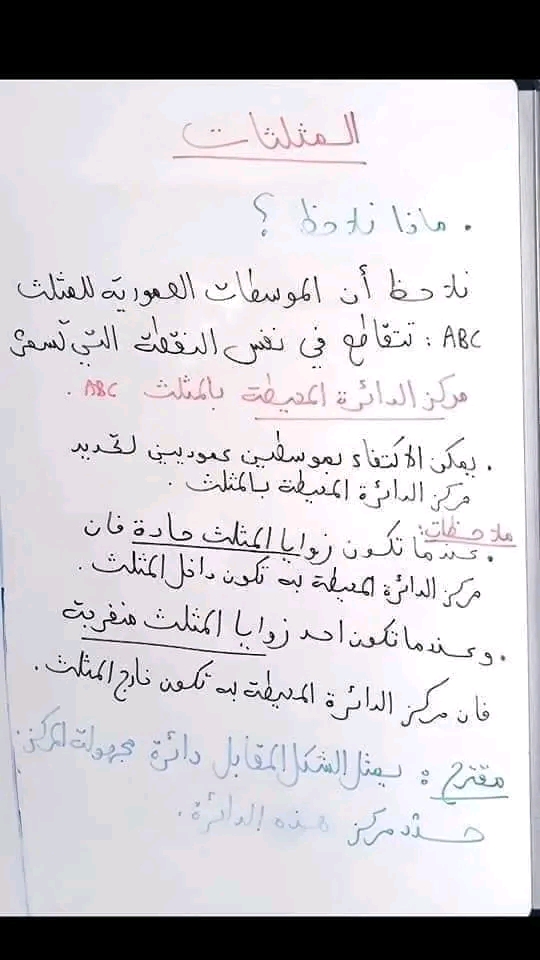 المثلثات
. ماذا نلاحظ ؟
نلاحظ أن الموسطات العمودية للمثلث
ABC : تتقاطع في نفس النقطة التي تسمى
مركز الدائرة المحيطة بالمثلث ABC .
. يمكن الاكتفاء بموسطين عموديين لتحديد
مركز الدائرة المحيطة بالمثلث .
ملاحظات:
. عندما تكون زوايا المثلث حادة فان
مركز الدائرة المحيطة به تكون داخل المثلث .
. وعندما تكون احد زوايا المثلث منفرجة
فان مركز الدائرة المحيطة به تكون خارج المثلث .
مقترح : يمثل الشكل المقابل دائرة مجهولة المركز.
حدد مركز هذه الدائرة .